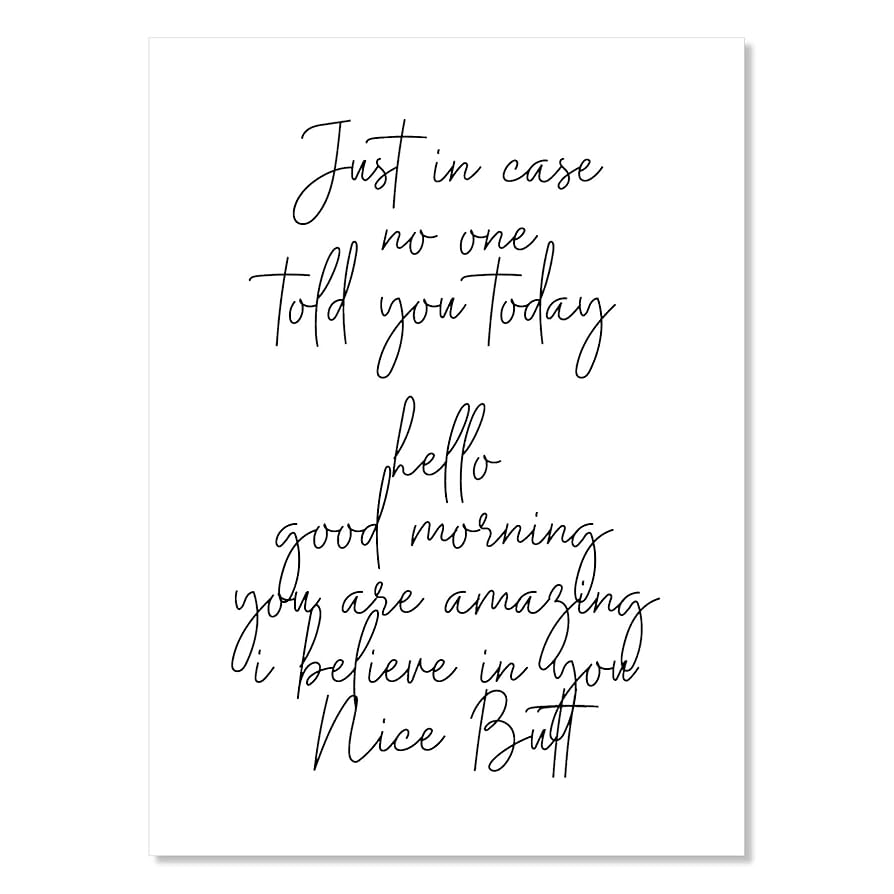 Just in case
no one
told you today
hello
good morning
you are amazing
i believe in you
Nice Butt